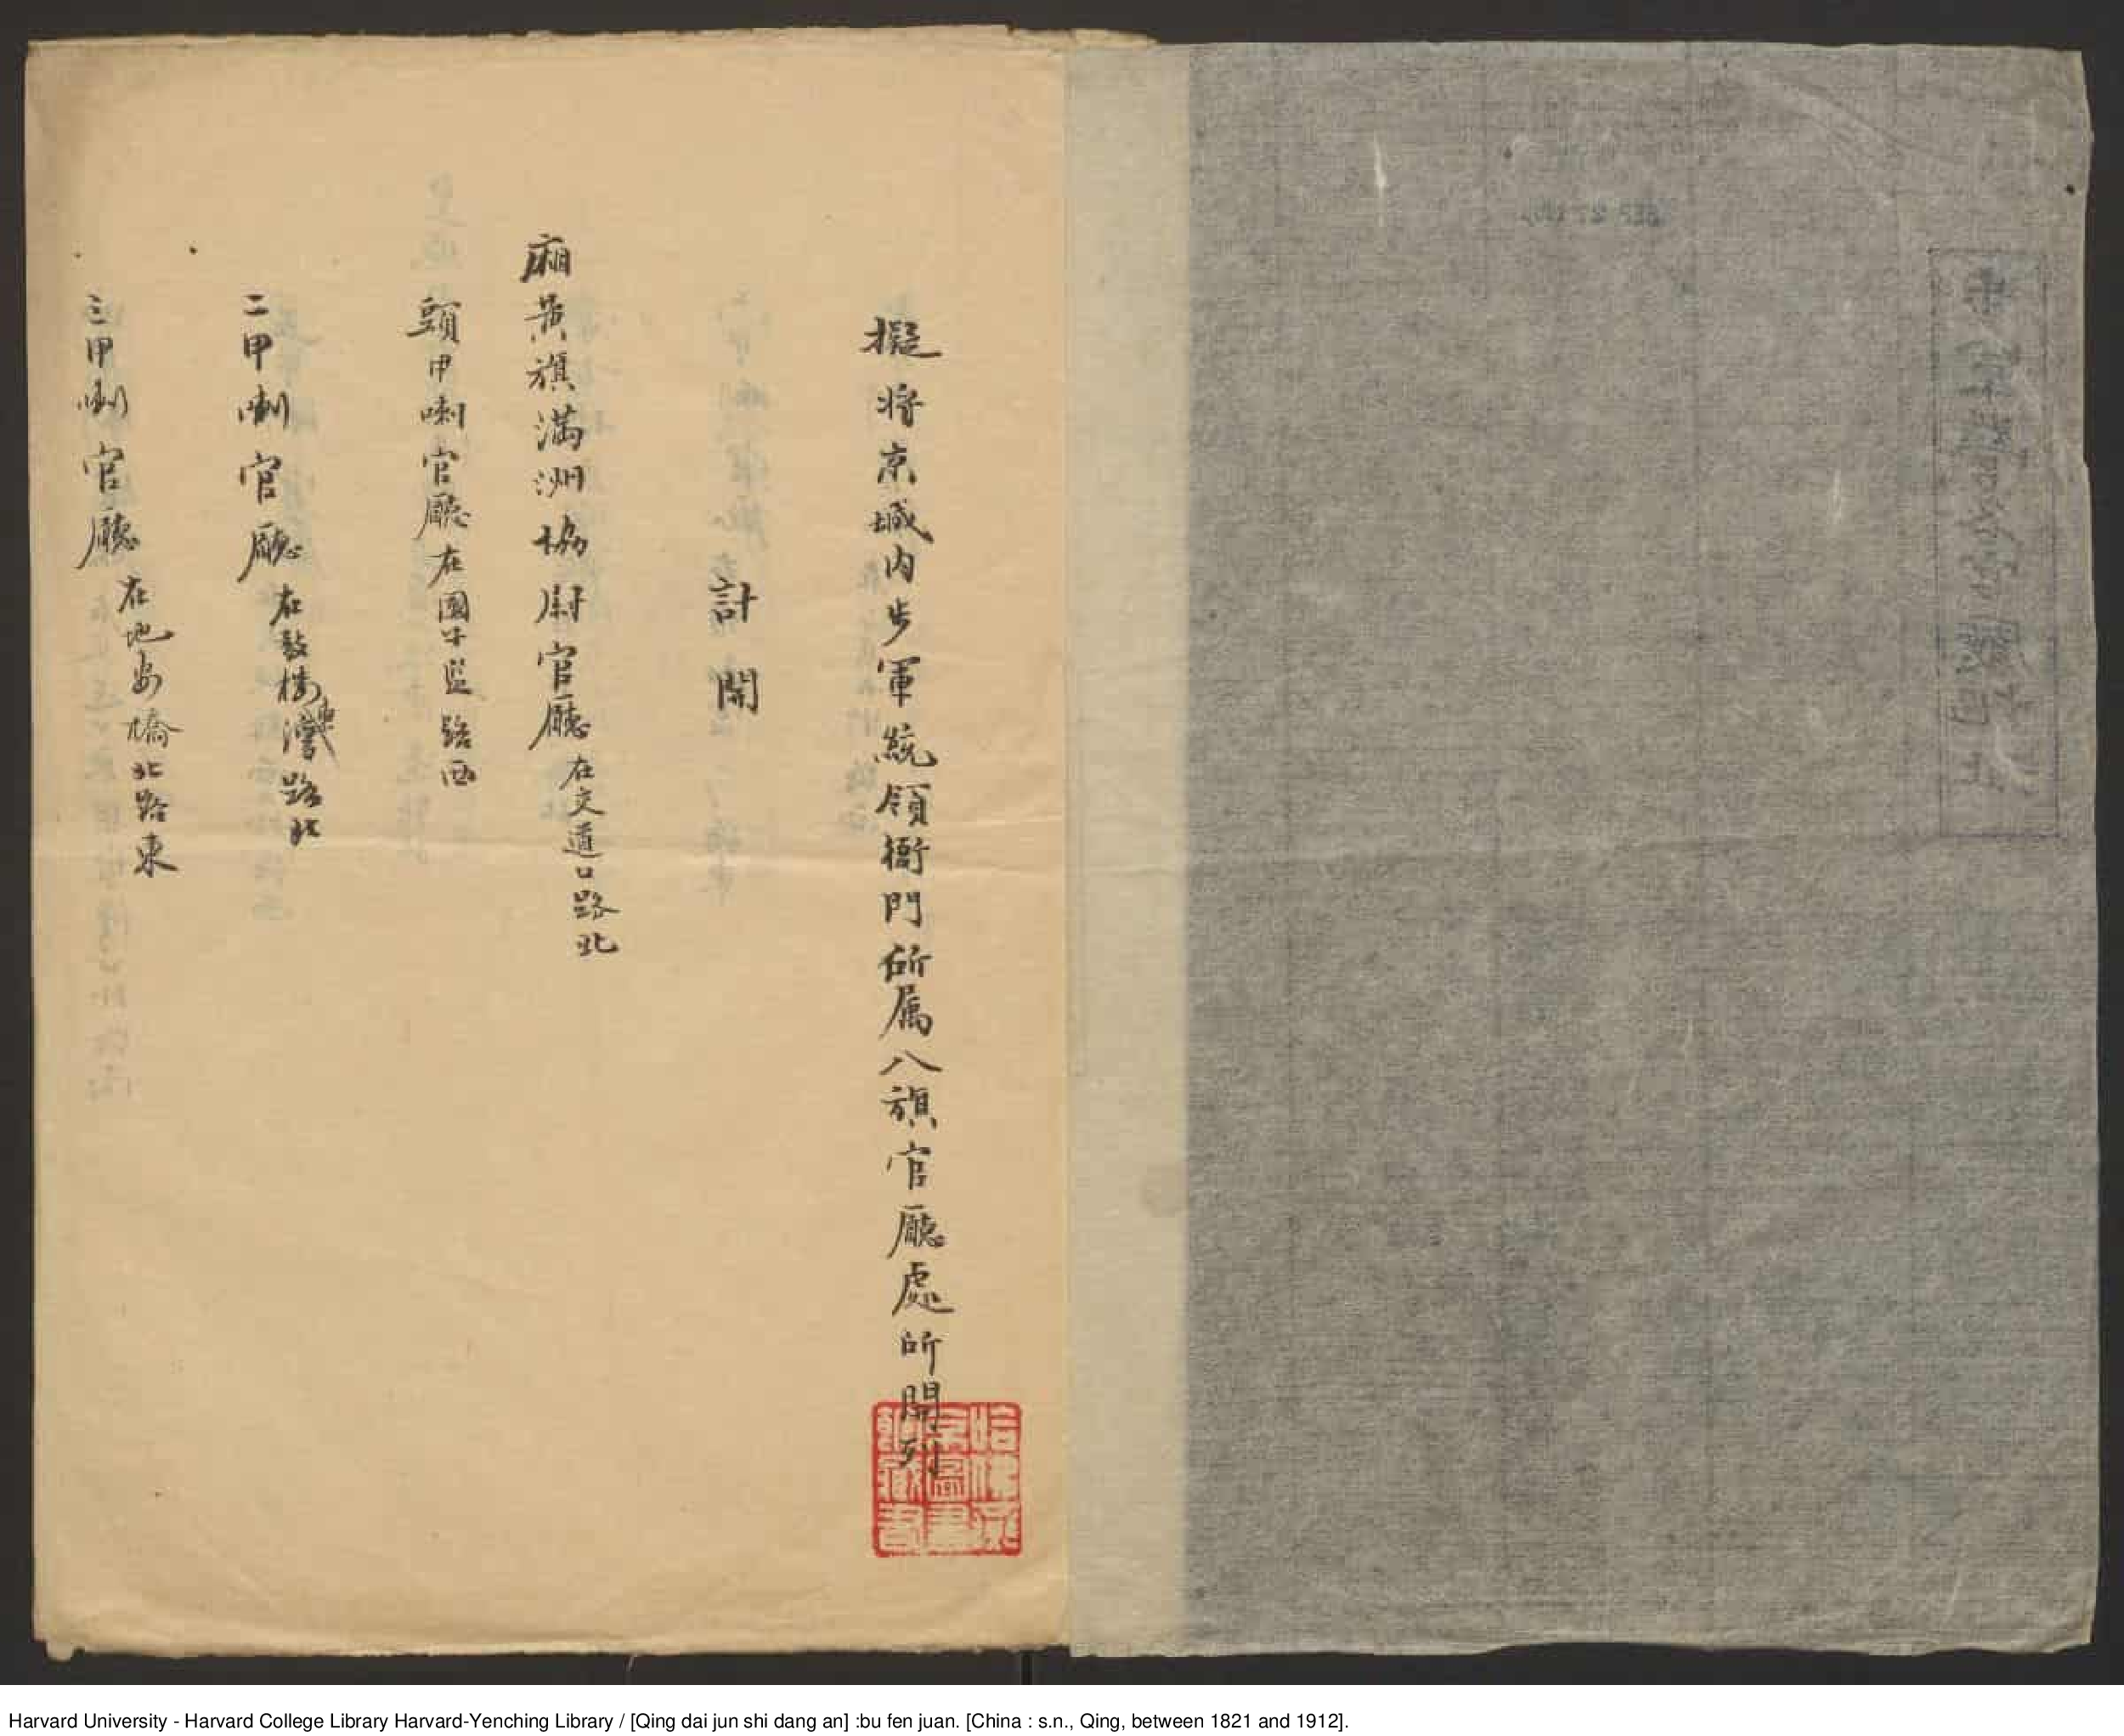 擬將京城内步軍統領衙門所属八旗官廳處所開列
計開
廂黃旗滿洲協尉官廳在交道口路北
頭甲喇官廳在國子監路西
二甲喇官廳在鼓樓灣路北
三甲喇官廳在地安橋北路東
哈佛燕京圖書館藏書
Harvard University - Harvard College Library Harvard-Yenching Library / [Qing dai jun shi dang an] :bu fen juan. [China : s.n., Qing, between 1821 and 1912].